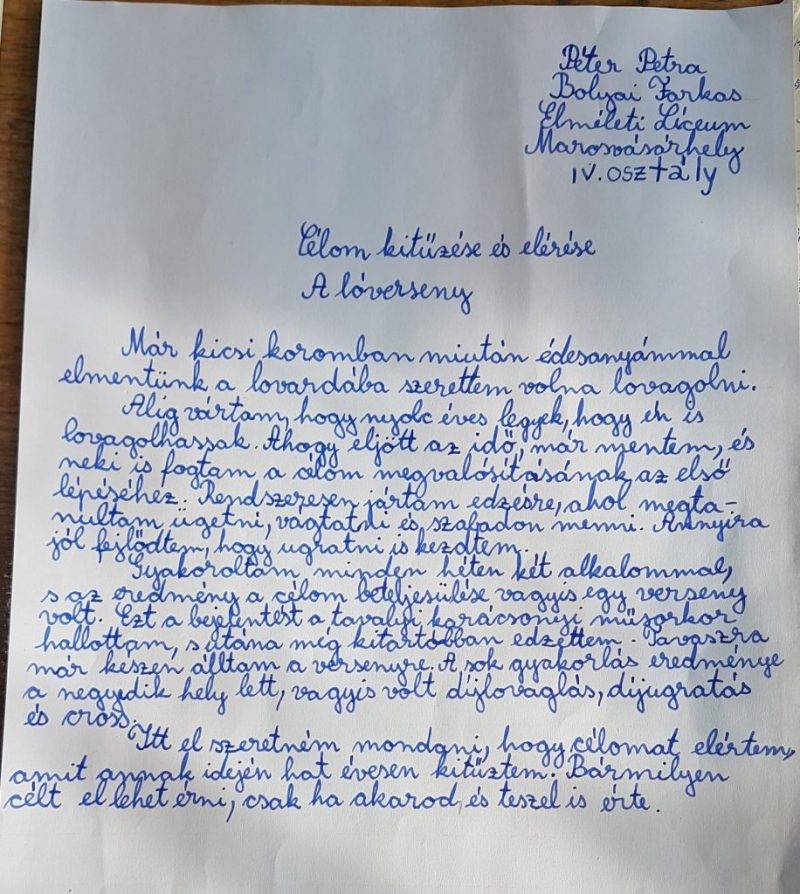 Péter Petra
Bolyai Farkas
Elméleti Líceum
Marosvásárhely
IV. osztály
Célom kitűzése és elérése
A lóverseny
Már kicsi koromban miután édesanyámmal
elmentünk a lovardába szerettem volna lovagolni.
Alig vártam, hogy nyolc éves legyek, hogy én is
lovagolhassak. Ahogy eljött az idő, már mentem, és
neki is fogtam a célom megvalósításának az első
lépéséhez. Rendszeresen jártam edzésre, ahol megta-
nultam ügetni, vágtatni és szabadon menni. Annyira
jól fejlődtem, hogy ugratni is kezdtem.
Gyakoroltam minden héten két alkalommal,
s az eredmény a célom beteljesülése vagyis egy verseny
volt. Ezt a bejelentést a tavalyi karácsonyi műsorkor
hallottam, s utána még kitartóbban edzettem. Tavaszra
már készen álltam a versenyre. A sok gyakorlás eredménye
a negyedik hely lett, vagyis volt díjlovaglás, díjugratás
és cross.
Itt el szeretném mondani, hogy célomat elértem,
amit annak idején hat évesen kitűztem. Bármilyen
célt el lehet érni, csak ha akarod, és teszel is érte.